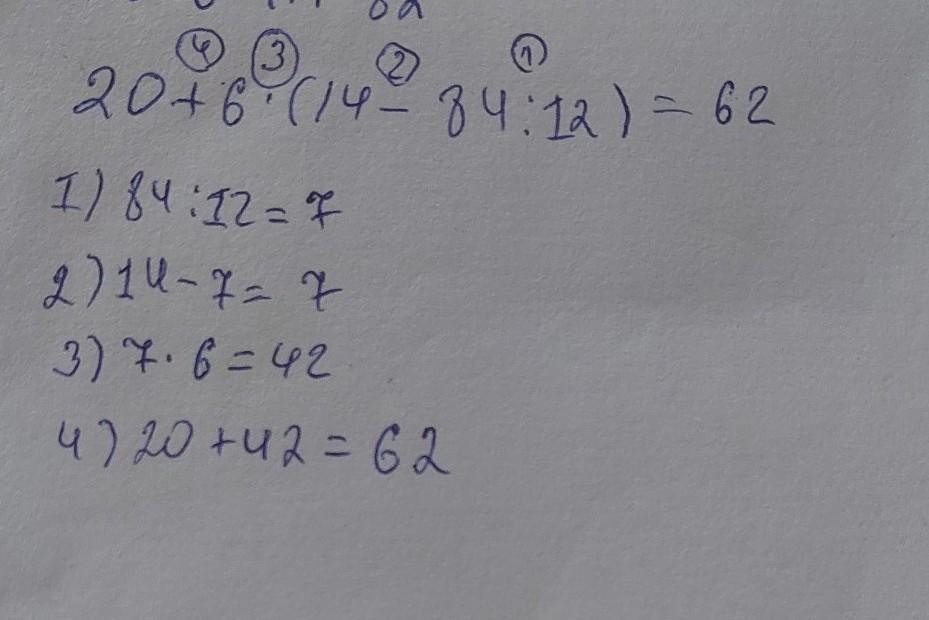 ④ ③ ② ①
20+6·(14-84:12)=62
1) 84:12=7
2) 14-7=7
3) 7·6=42
4) 20+42=62